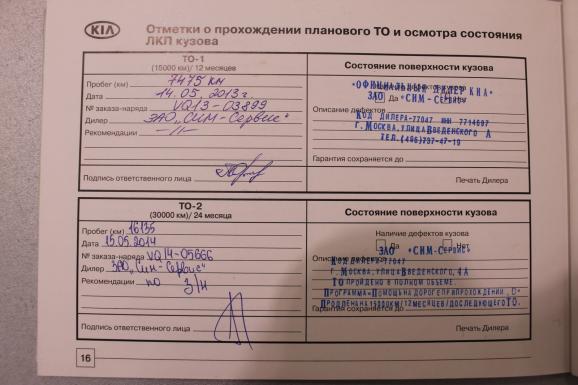 KIA
Отметки о прохождении планового ТО и осмотра состояния
ЛКП кузова
ТО-1
(15000 км)/ 12 месяцев
Пробег (км) 7475 км
Дата 14.05.2013г.
№ заказа-наряда VQ13-03899
Дилер ЗАО "СИМ-Сервис"
Рекомендации -//-
Подпись ответственного лица
Состояние поверхности кузова
"ОФИЦИАЛЬНЫЙ ДИЛЕР КИА"
Да ЗАО "СИМ-Сервис"
Описание дефектов
Код дилера-77047 ИНН 7714697
г.Москва, улица Введенского А
ТЕЛ.(495)737-47-19
Гарантия сохраняется до
Печать Дилера
ТО-2
(30000 км)/ 24 месяца
Пробег (км) 16135
Дата 15.05.2014
№ заказа-наряда VQ14-05666
Дилер ЗАО "Сим-Сервис"
Рекомендации по З/Н
Подпись ответственного лица
Состояние поверхности кузова
Наличие дефектов кузова
Да Нет
ЗАО "СИМ-Сервис"
Код дилера-77047
г.Москва, улица Введенского, 4А
ТО пройдено в полном объеме.
Программа "Помощь на дороге" при прохождении
Продлена на 15000км/12месяцев/до следующего ТО.
Гарантия сохраняется до
Печать Дилера
16